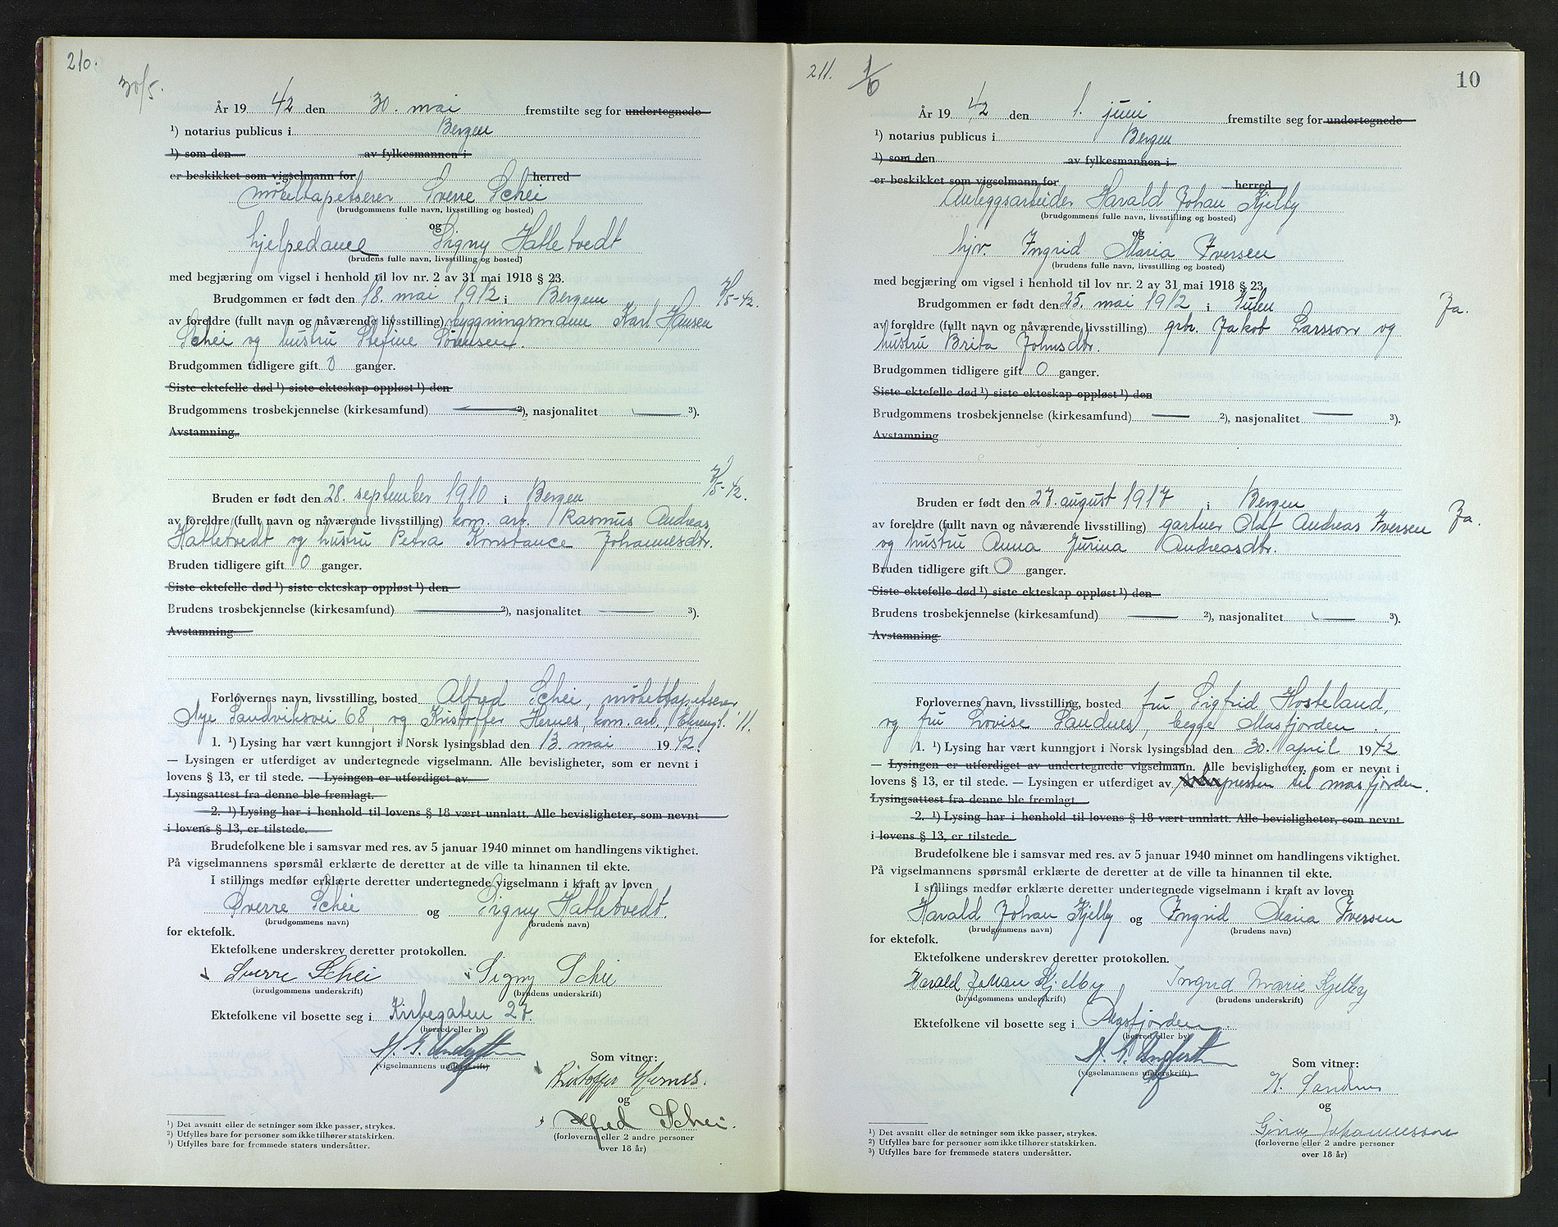 210.
30/5.
År 19 42 den 30. mai fremstilte seg for undertegnede
¹) notarius publicus i Bergen
¹) som den av fylkesmannen i
er beskikket som vigselmann for herred
møbeltapetserer Sverre Schei
(brudgommens fulle navn, livsstilling og bosted)
og
hjelpedame Signy Hatletvedt
(brudens fulle navn, livsstilling og bosted)
med begjæring om vigsel i henhold til lov nr. 2 av 31 mai 1918 § 23.
Brudgommen er født den 18. mai 1912 i Bergen
av foreldre (fullt navn og nåværende livsstilling) bygningssnedker Karl Hansen
Schei og hustru Stefine Sørensen.
Brudgommen tidligere gift 0 ganger.
Siste ektefelle død ¹) siste ekteskap oppløst ¹) den
Brudgommens trosbekjennelse (kirkesamfund) — ²), nasjonalitet — ³).
Avstamning
Bruden er født den 28. september 1910 i Bergen
av foreldre (fullt navn og nåværende livsstilling) kom. arb. Rasmus Andreas
Hatletvedt og hustru Petra Konstance Johannesdtr.
Bruden tidligere gift 0 ganger.
Siste ektefelle død ¹) siste ekteskap oppløst ¹) den
Brudens trosbekjennelse (kirkesamfund) — ²), nasjonalitet — ³).
Avstamning
Forlovernes navn, livsstilling, bosted Alfred Schei, møbeltapetserer
Nye Sandviksvei 68, og Kristoffer Hernes, kom. arb. 11.
1. ¹) Lysing har vært kunngjort i Norsk lysingsblad den 13. mai 1942.
— Lysingen er utferdiget av undertegnede vigselmann. Alle bevisligheter, som er nevnt i
lovens § 13, er til stede. — Lysingen er utferdiget av
Lysingsattest fra denne ble fremlagt.
2. ¹) Lysing har i henhold til lovens § 18 vært unnlatt. Alle bevisligheter, som nevnt
i lovens § 13, er tilstede.
Brudefolkene ble i samsvar med res. av 5 januar 1940 minnet om handlingens viktighet.
På vigselmannens spørsmål erklærte de deretter at de ville ta hinannen til ekte.
I stillings medfør erklærte deretter undertegnede vigselmann i kraft av loven
Sverre Schei og Signy Hatletvedt.
(brudgommens navn) (brudens navn)
for ektefolk.
Ektefolkene underskrev deretter protokollen.
Sverre Schei Signy Schei
(brudgommens underskrift) (brudens underskrift)
Ektefolkene vil bosette seg i Kirkegaten
(herred eller by)
(vigselmannens underskrift)
Som vitner:
Kristoffer Hernes.
og
Alfred Schei.
(forloverne eller 2 andre personer
over 18 år)
¹) Det avsnitt eller de setninger som ikke passer, strykes.
²) Utfylles bare for personer som ikke tilhører statskirken.
³) Utfylles bare for fremmede staters undersåtter.
211. 1/6
10
År 19 42 den 1. juni fremstilte seg for undertegnede
¹) notarius publicus i Bergen
¹) som den av fylkesmannen i
er beskikket som vigselmann for herred
Anleggsarbeider Harald Johan Kjelby
(brudgommens fulle navn, livsstilling og bosted)
og
hjv. Ingrid Maria Iversen
(brudens fulle navn, livsstilling og bosted)
med begjæring om vigsel i henhold til lov nr. 2 av 31 mai 1918 § 23.
Brudgommen er født den 25. mai 1912 i Gulen Ja.
av foreldre (fullt navn og nåværende livsstilling) grb. Jakob Larsson og
hustru Brita Johnsdtr.
Brudgommen tidligere gift 0 ganger.
Siste ektefelle død ¹) siste ekteskap oppløst ¹) den
Brudgommens trosbekjennelse (kirkesamfund) — ²), nasjonalitet — ³).
Avstamning
Bruden er født den 27. august 1917 i Bergen
av foreldre (fullt navn og nåværende livsstilling) gartner Olaf Andreas Iversen Ja.
og hustru Anna Jurina Andreasdtr.
Bruden tidligere gift 0 ganger.
Siste ektefelle død ¹) siste ekteskap oppløst ¹) den
Brudens trosbekjennelse (kirkesamfund) — ²), nasjonalitet — ³).
Avstamning
Forlovernes navn, livsstilling, bosted fru Sigrid Hosteland,
og fru Lovise Sandnes, begge Masfjorden.
1. ¹) Lysing har vært kunngjort i Norsk lysingsblad den 30. april 1942
— Lysingen er utferdiget av undertegnede vigselmann. Alle bevisligheter, som er nevnt i
lovens § 13, er til stede. — Lysingen er utferdiget av presten til masfjorden.
Lysingsattest fra denne ble fremlagt
2. ¹) Lysing har i henhold til lovens § 18 vært unnlatt. Alle bevisligheter, som nevnt
i lovens § 13, er tilstede.
Brudefolkene ble i samsvar med res. av 5 januar 1940 minnet om handlingens viktighet.
På vigselmannens spørsmål erklærte de deretter at de ville ta hinannen til ekte.
I stillings medfør erklærte deretter undertegnede vigselmann i kraft av loven
Harald Johan Kjelby og Ingrid Maria Iversen
(brudgommens navn) (brudens navn)
for ektefolk.
Ektefolkene underskrev deretter protokollen.
Harald Johan Kjelby Ingrid Marie Kjelby
(brudgommens underskrift) (brudens underskrift)
Ektefolkene vil bosette seg i Masfjorden.
(herred eller by)
(vigselmannens underskrift)
Som vitner:
K. Sandnes
og
Johannesson
(forloverne eller 2 andre personer
over 18 år)
¹) Det avsnitt eller de setninger som ikke passer, strykes.
²) Utfylles bare for personer som ikke tilhører statskirken.
³) Utfylles bare for fremmede staters undersåtter.